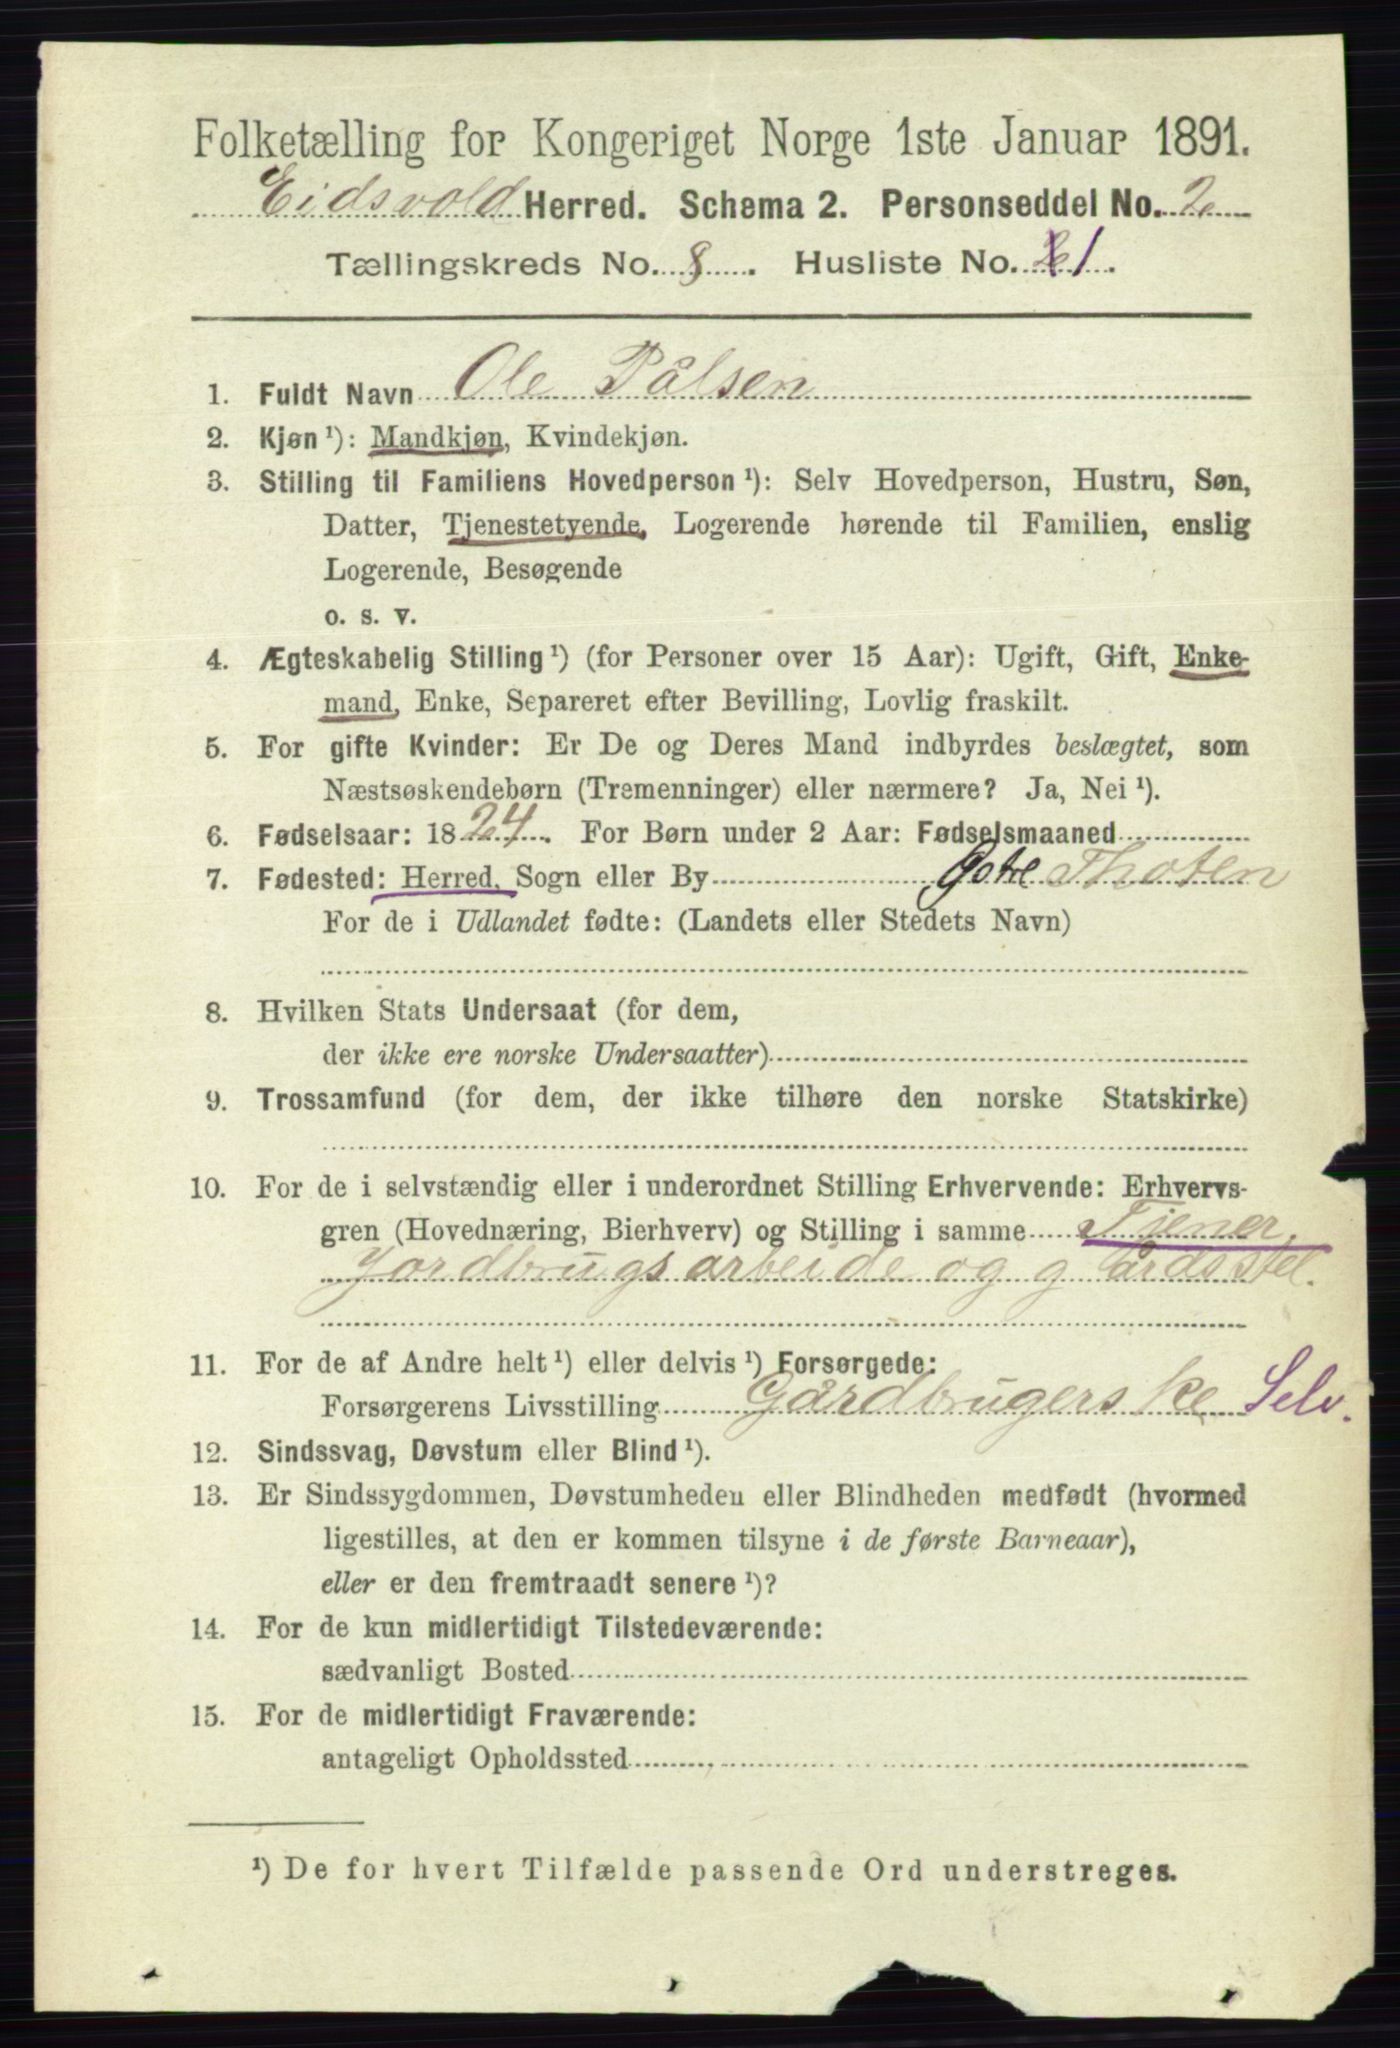 Folketælling for Kongeriget Norge 1ste Januar 1891.
Eidsvold Herred. Schema 2. Personseddel No. 2
Tællingskreds No. 8. Husliste No. 1.
1. Fuldt Navn Ole Pålsen
2. Kjøn ¹): Mandkjøn, Kvindekjøn.
3. Stilling til Familiens Hovedperson ¹): Selv Hovedperson, Hustru, Søn,
Datter, Tjenestetyende, Logerende hørende til Familien, enslig
Logerende, Besøgende
o. s. v.
4. Ægteskabelig Stilling ¹) (for Personer over 15 Aar): Ugift, Gift, Enke-
mand, Enke, Separeret efter Bevilling, Lovlig fraskilt.
5. For gifte Kvinder: Er De og Deres Mand indbyrdes beslægtet, som
Næstsøskendebørn (Tremenninger) eller nærmere? Ja, Nei ¹).
6. Fødselsaar: 1824. For Børn under 2 Aar: Fødselsmaaned
7. Fødested: Herred, Sogn eller By Thoten
For de i Udlandet fødte: (Landets eller Stedets Navn)
8. Hvilken Stats Undersaat (for dem,
der ikke ere norske Undersaatter)
9. Trossamfund (for dem, der ikke tilhøre den norske Statskirke)
10. For de i selvstændig eller i underordnet Stilling Erhvervende: Erhvervs-
gren (Hovednæring, Bierhverv) og Stilling i samme Tjener,
Jordbrugsarbeide og gårdsstel.
11. For de af Andre helt ¹) eller delvis ¹) Forsørgede:
Forsørgerens Livsstilling Gårdbrugerske Selv.
12. Sindssvag, Døvstum eller Blind ¹).
13. Er Sindssygdommen, Døvstumheden eller Blindheden medfødt (hvormed
ligestilles, at den er kommen tilsyne i de første Barneaar),
eller er den fremtraadt senere ¹)?
14. For de kun midlertidigt Tilstedeværende:
sædvanligt Bosted
15. For de midlertidigt Fraværende:
antageligt Opholdssted
¹) De for hvert Tilfælde passende Ord understreges.